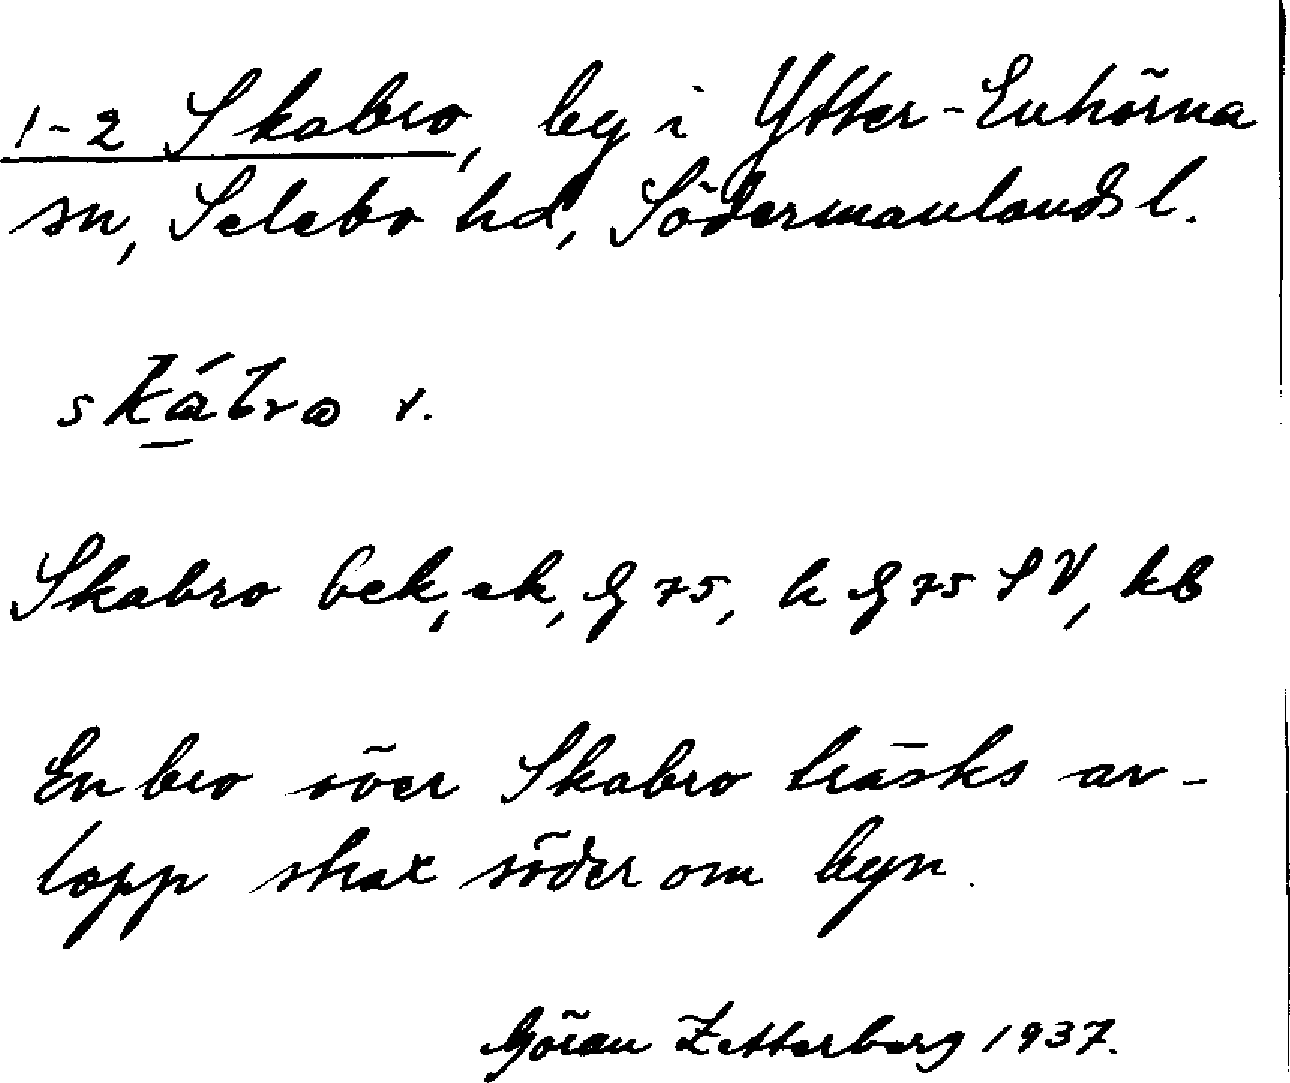 1-2 Skabro, by i Ytter-Enhörna
sn, Selebo hd, Södermanlands l.
skábro v.
Skabro bek, ek, G 75, h G 75 SV, kb
En bro över Skabro träsks av-
lopp strax söder om byn.
Göran Zetterberg 1937.